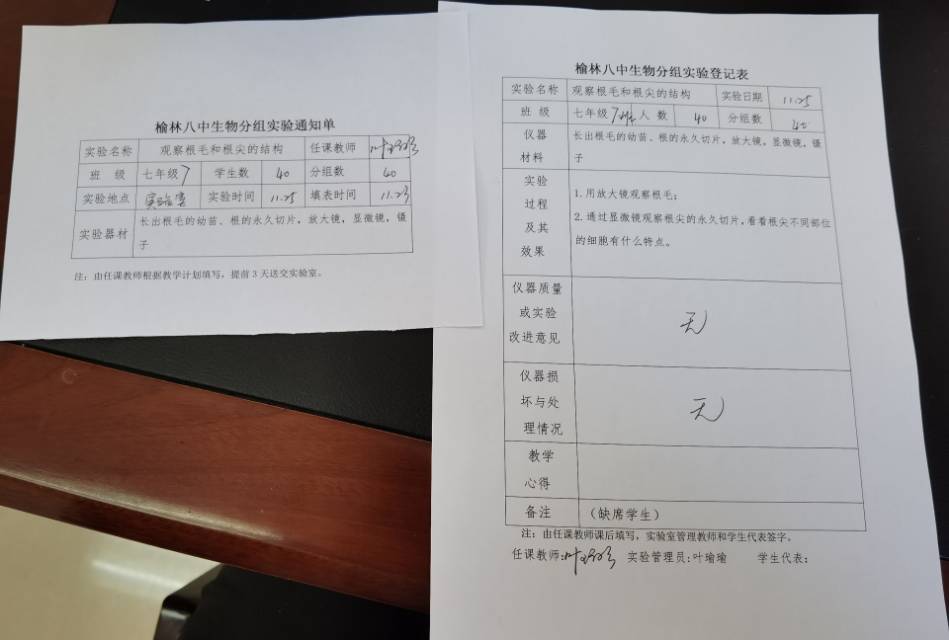 榆林八中生物分组实验通知单
实验名称 观察根毛和根尖的结构 任课教师
班 级 七年级7 学生数 40 分组数 40
实验地点 实验室 实验时间 11.25 填表时间 11.23
实验器材 长出根毛的幼苗、根的永久切片，放大镜，显微镜，镊
子
注：由任课教师根据教学计划填写，提前 3 天送交实验室。
榆林八中生物分组实验登记表
实验名称 观察根毛和根尖的结构 实验日期 11.25
班 级 七年级 7班 人 数 40 分组数 40
仪器
材料
长出根毛的幼苗、根的永久切片，放大镜，显微镜，镊
子
实验
过程
及其
效果
1.用放大镜观察根毛；
2.通过显微镜观察根尖的永久切片，看看根尖不同部位
的细胞有什么特点。
仪器质量
或实验
改进意见
无
仪器损
坏与处
理情况
无
教学
心得
备注 （缺席学生）
注：由任课教师课后填写，实验室管理教师和学生代表签字。
任课教师: 实验管理员:叶瑜瑜 学生代表：